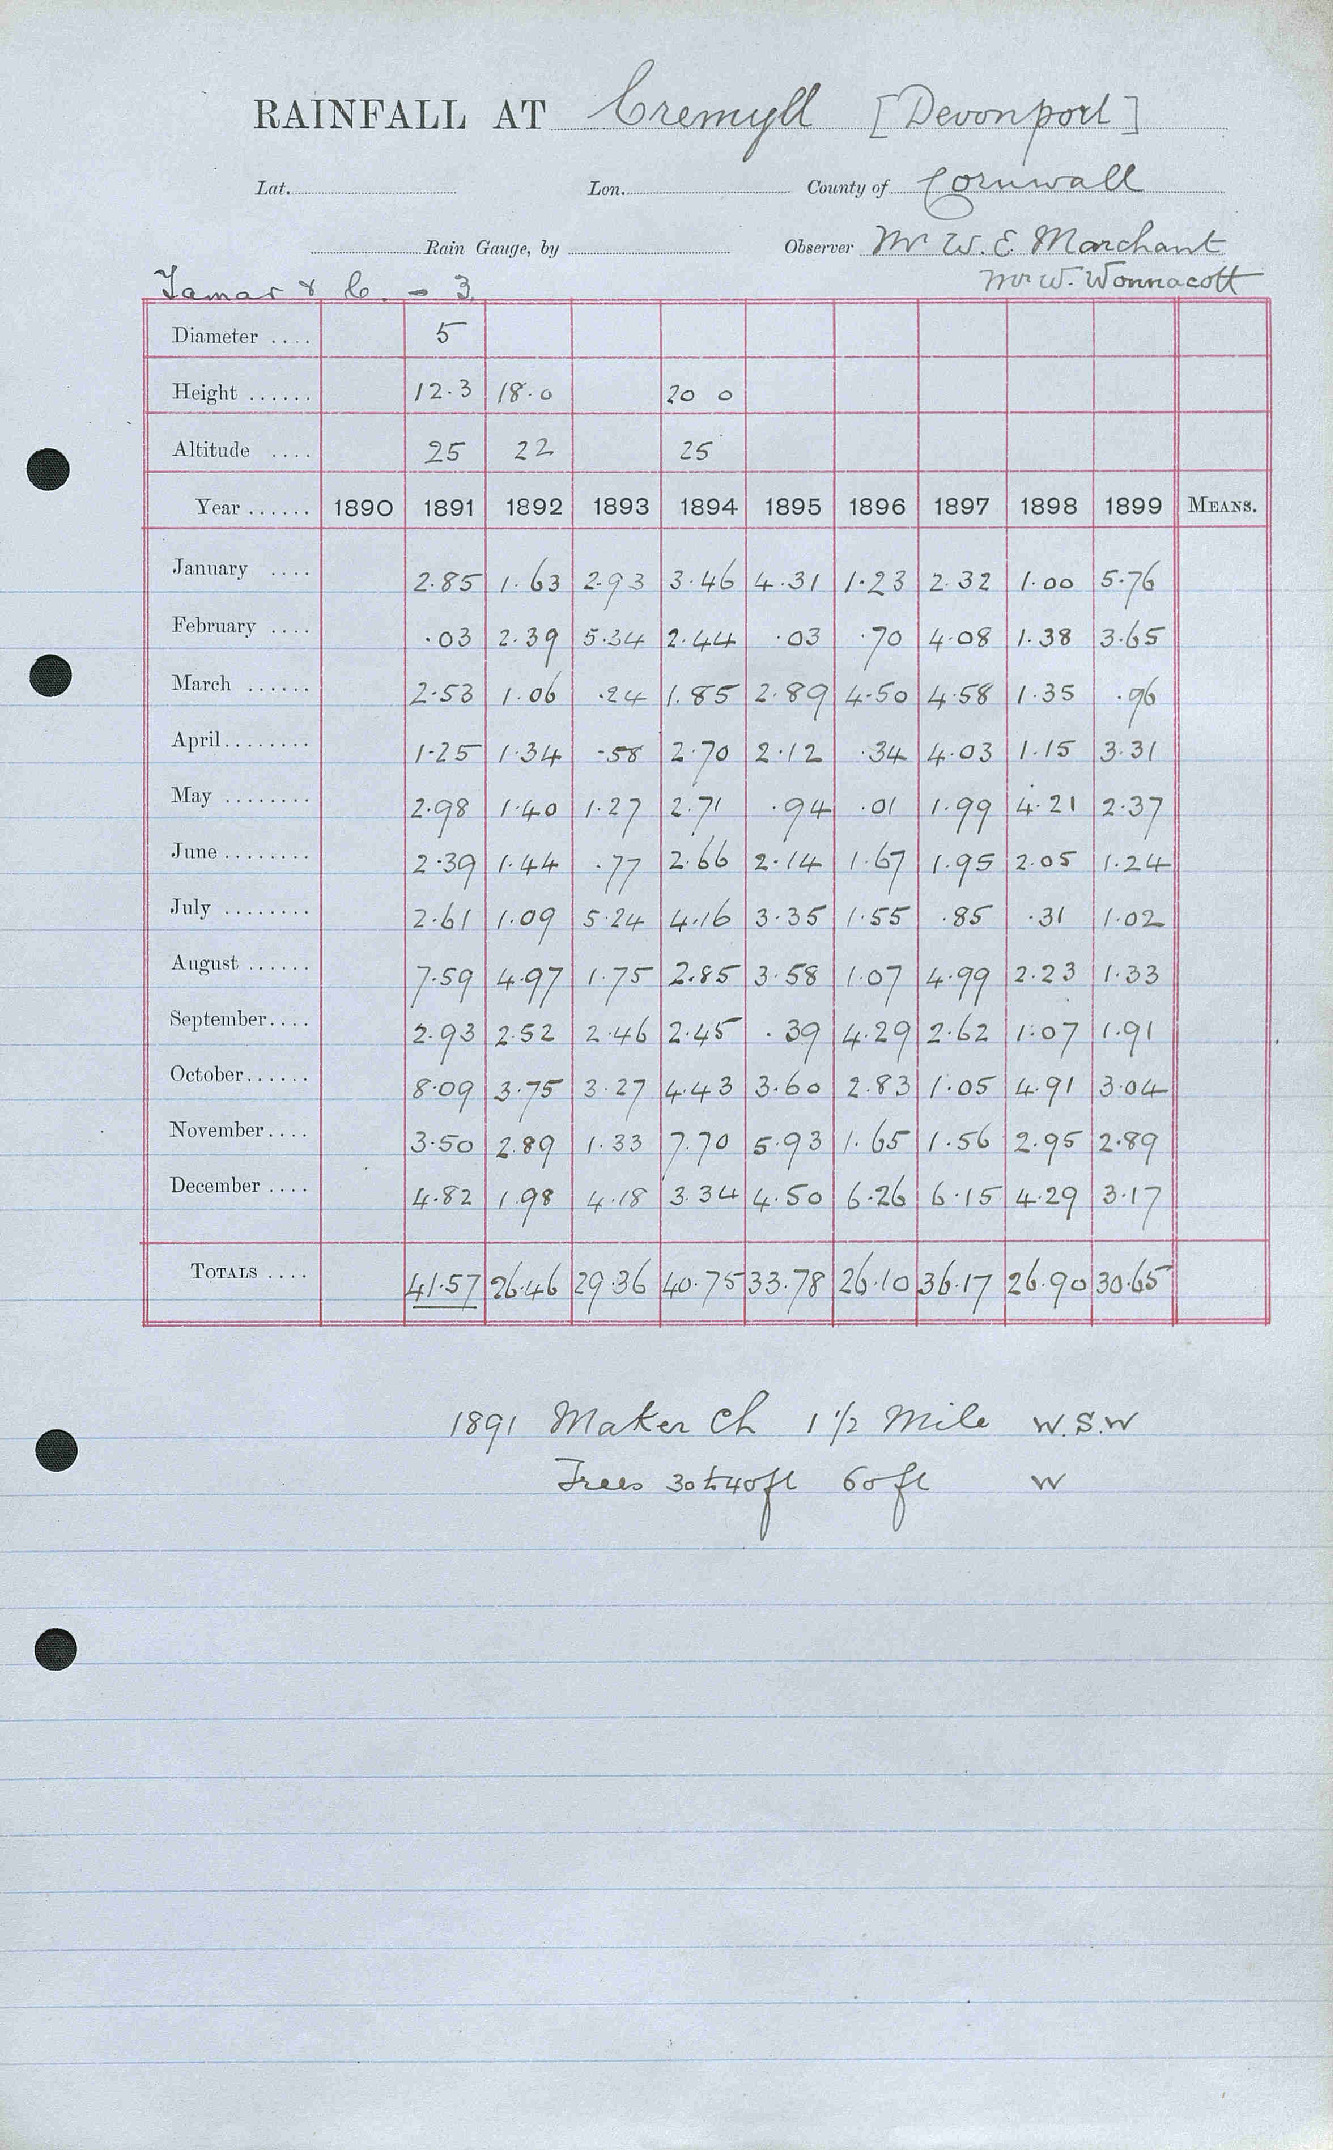 RAINFALL AT Cremyll [Devonport]
Lat. Lon. County of Cornwall
Rain Gauge, by Observer Mr W. E. Marchant
Tamar & C. - 3. Mr W. Wonnacott
Diameter .... 5
Height ...... 12.3 18.0 20 0
Altitude .... 25 22 25
Year ...... 1890 1891 1892 1893 1894 1895 1896 1897 1898 1899 MEANS.
January .... 2.85 1.63 2.93 3.46 4.31 1.23 2.32 1.00 5.76
February .... .03 2.39 5.34 2.44 .03 .70 4.08 1.38 3.65
March ...... 2.53 1.06 .24 1.85 2.89 4.50 4.58 1.35 .96
April........ 1.25 1.34 .58 2.70 2.12 .34 4.03 1.15 3.31
May ........ 2.98 1.40 1.27 2.71 .94 .01 1.99 4.21 2.37
June ........ 2.39 1.44 .77 2.66 2.14 1.67 1.95 2.05 1.24
July ........ 2.61 1.09 5.24 4.16 3.35 1.55 .85 .31 1.02
August ...... 7.59 4.97 1.75 2.85 3.58 1.07 4.99 2.23 1.33
September.... 2.93 2.52 2.46 2.45 .39 4.29 2.62 1.07 1.91
October...... 8.09 3.75 3.27 4.43 3.60 2.83 1.05 4.91 3.04
November.... 3.50 2.89 1.33 7.70 5.93 1.65 1.56 2.95 2.89
December .... 4.82 1.98 4.18 3.34 4.50 6.26 6.15 4.29 3.17
TOTALS .... 41.57 26.46 29.36 40.75 33.78 26.10 36.17 26.90 30.65
1891 Maker Ch 1 1/2 Mile W.S.W
Trees 30 to 40 ft 60 ft W